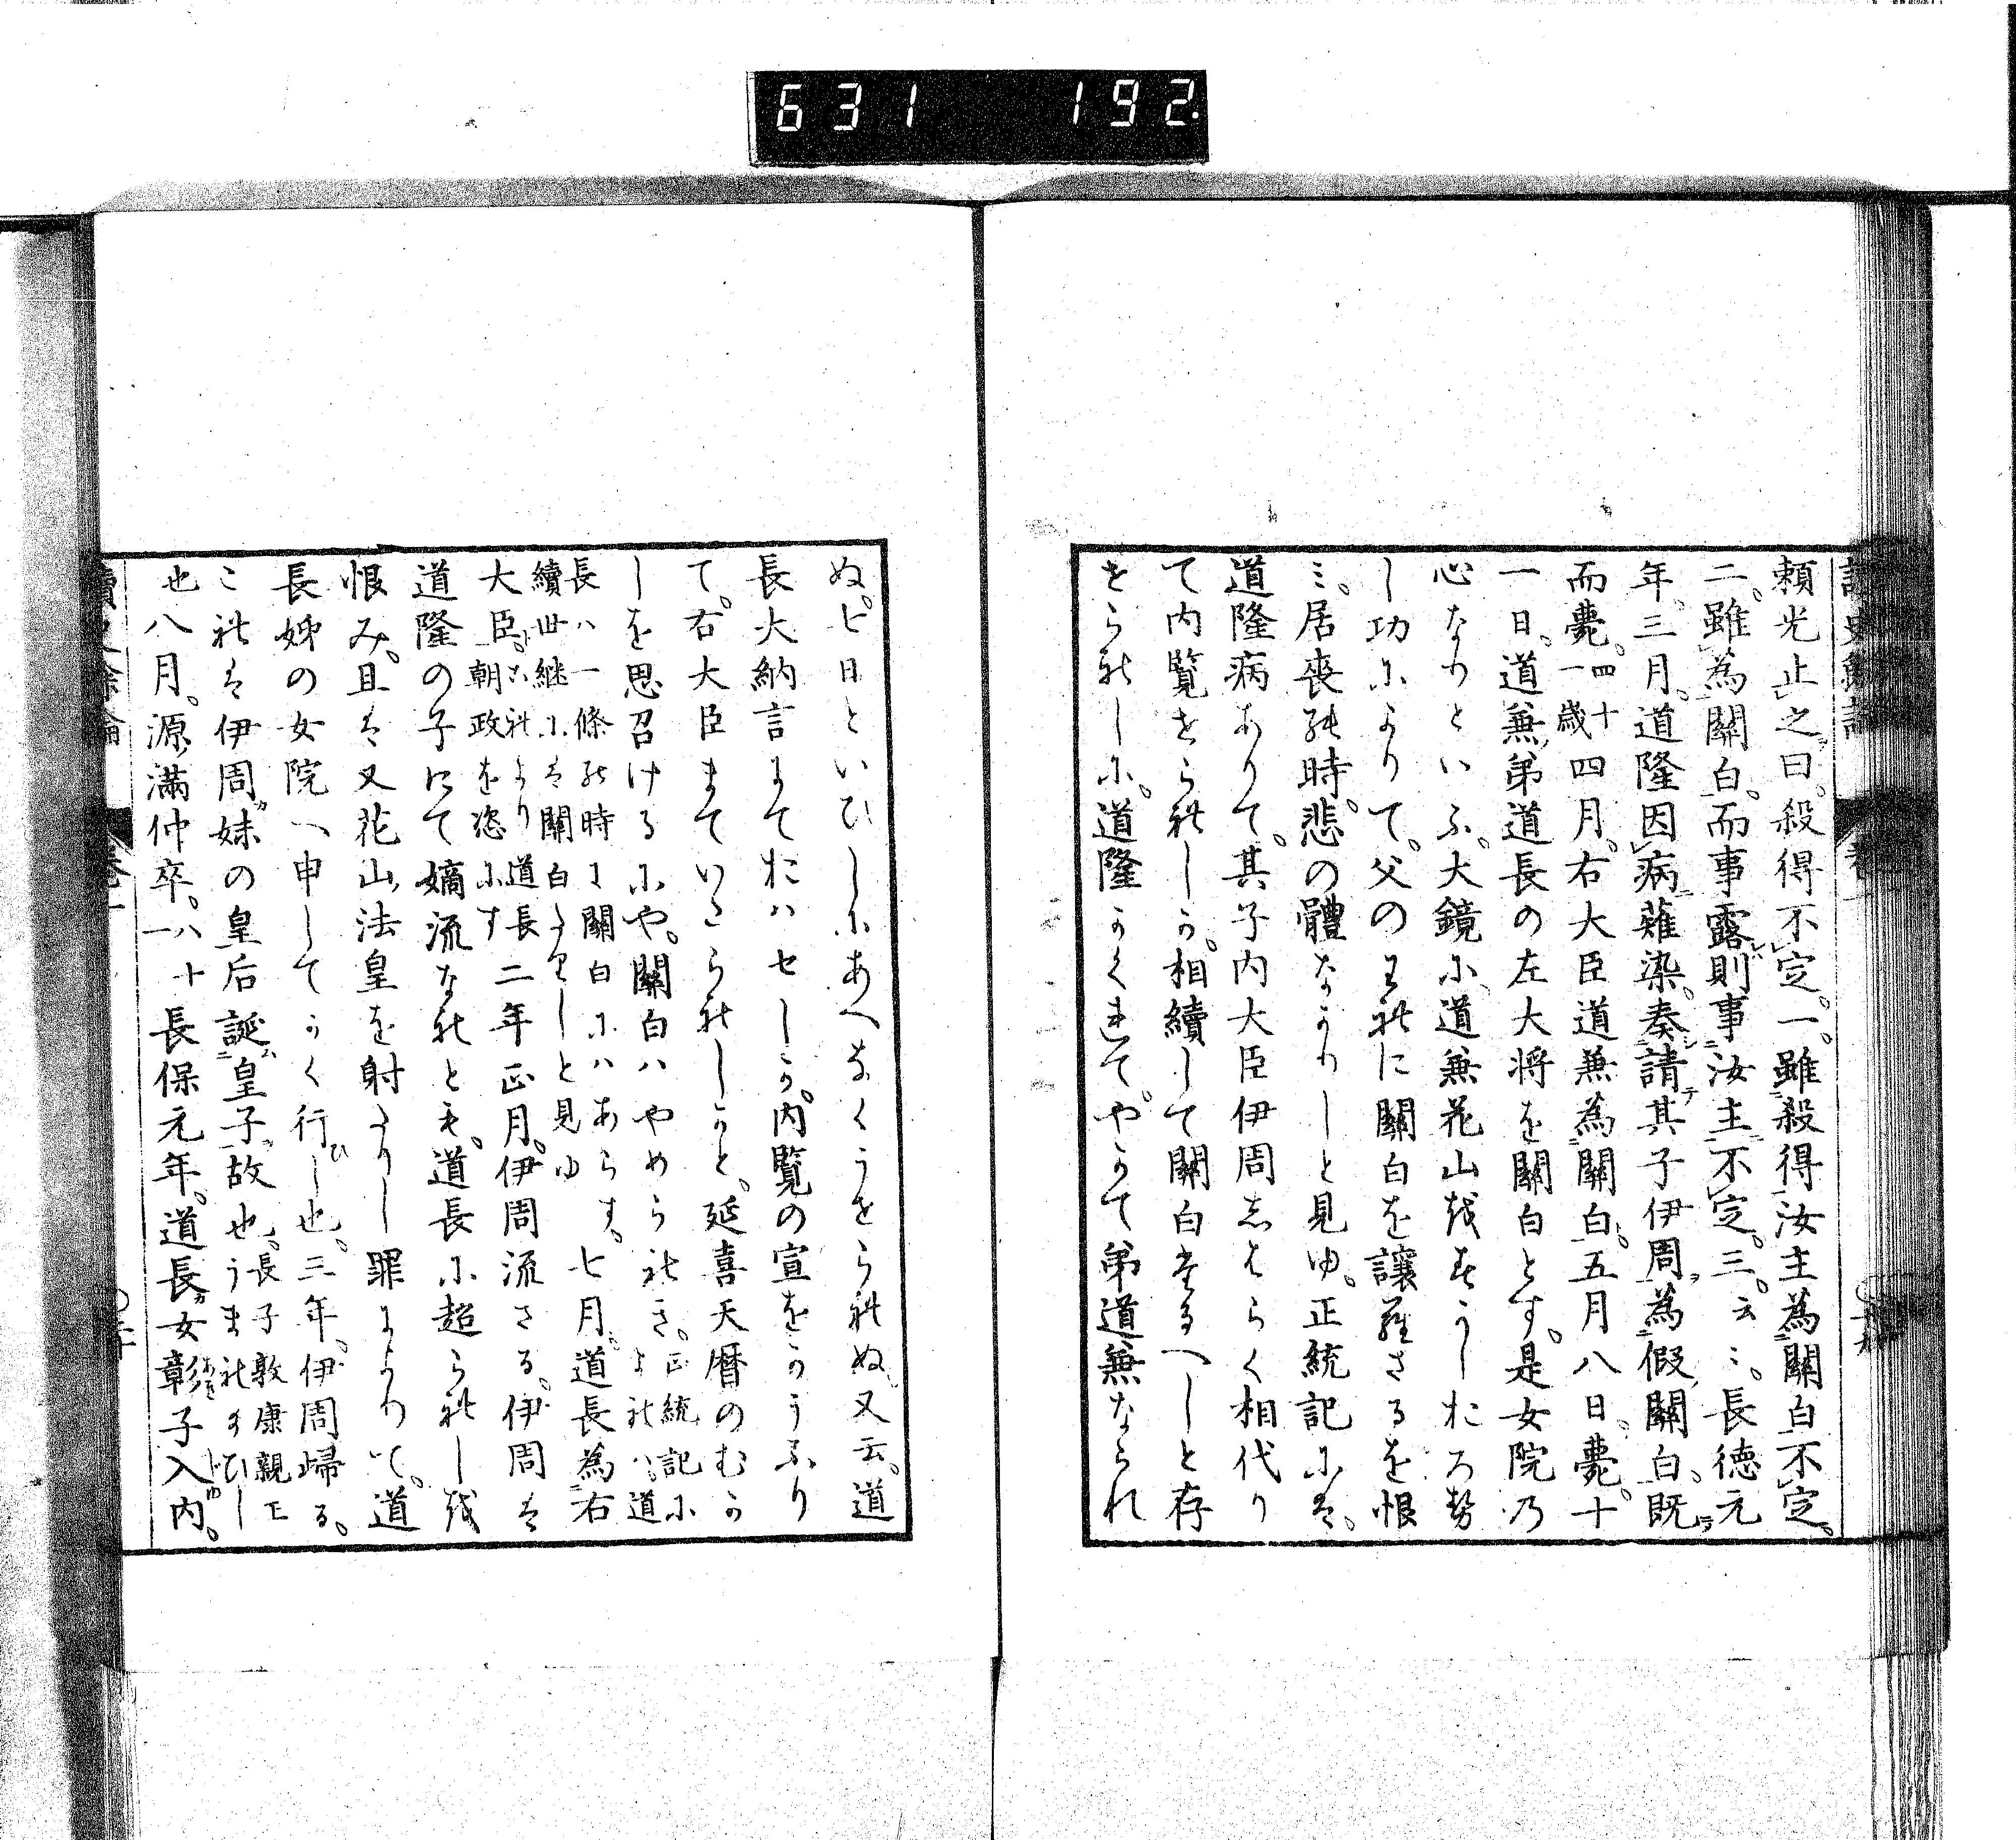 631 192
頼光止之曰。殺得不定。一。雖殺得汝主為關白不定。
二。雖為關白。而事露則事汝主不定。三。云〻。長徳元
年。三月。道隆因病薙染。奏請其子伊周為假關白。既
而薨。四十一歳四月。右大臣道兼為關白。五月八日。薨。十
一日。道兼弟道長の左大将を關白とす。是女院乃
心なりといふ。大鏡に道兼花山越すかしおろ勢
し功によりて。父のわれに關白を讓羅さるを恨
み。居喪能時。悲の體なかりしと見ゆ。正統記には。
道隆病ありて。其子内大臣伊周志はらく相代り
て内覧せられしか。相續して關白たるへしと存
せられしに。道隆かくれて。やかて弟道兼なられ
ぬ。七日といひしにあへなくうせられぬ。又云。道
長大納言にておハセしか。内覧の宣をかうふり
て。右大臣まていたられしかと。延喜天暦のむか
しを思召けるにや。關白ハやめられき。正統記によれハ。道
長ハ一條能時に關白にハあらす。
續世継には關白たりしと見ゆ
七月。道長為右
大臣。これより道長
朝政を恣にす
二年正月。伊周流さる。伊周は
道隆の子にて嫡流なれとも。道長に超られし越
恨み。且は又花山法皇を射たりし罪によりて。道
長姊の女院へ申してかく行ひし也。三年。伊周歸る。
これは伊周妹の皇后誕皇子故也。長子敦康親王
うまれまひし
也八月。源滿仲卒。八十一長保元年。道長女彰子入内。
讀史餘論 卷一